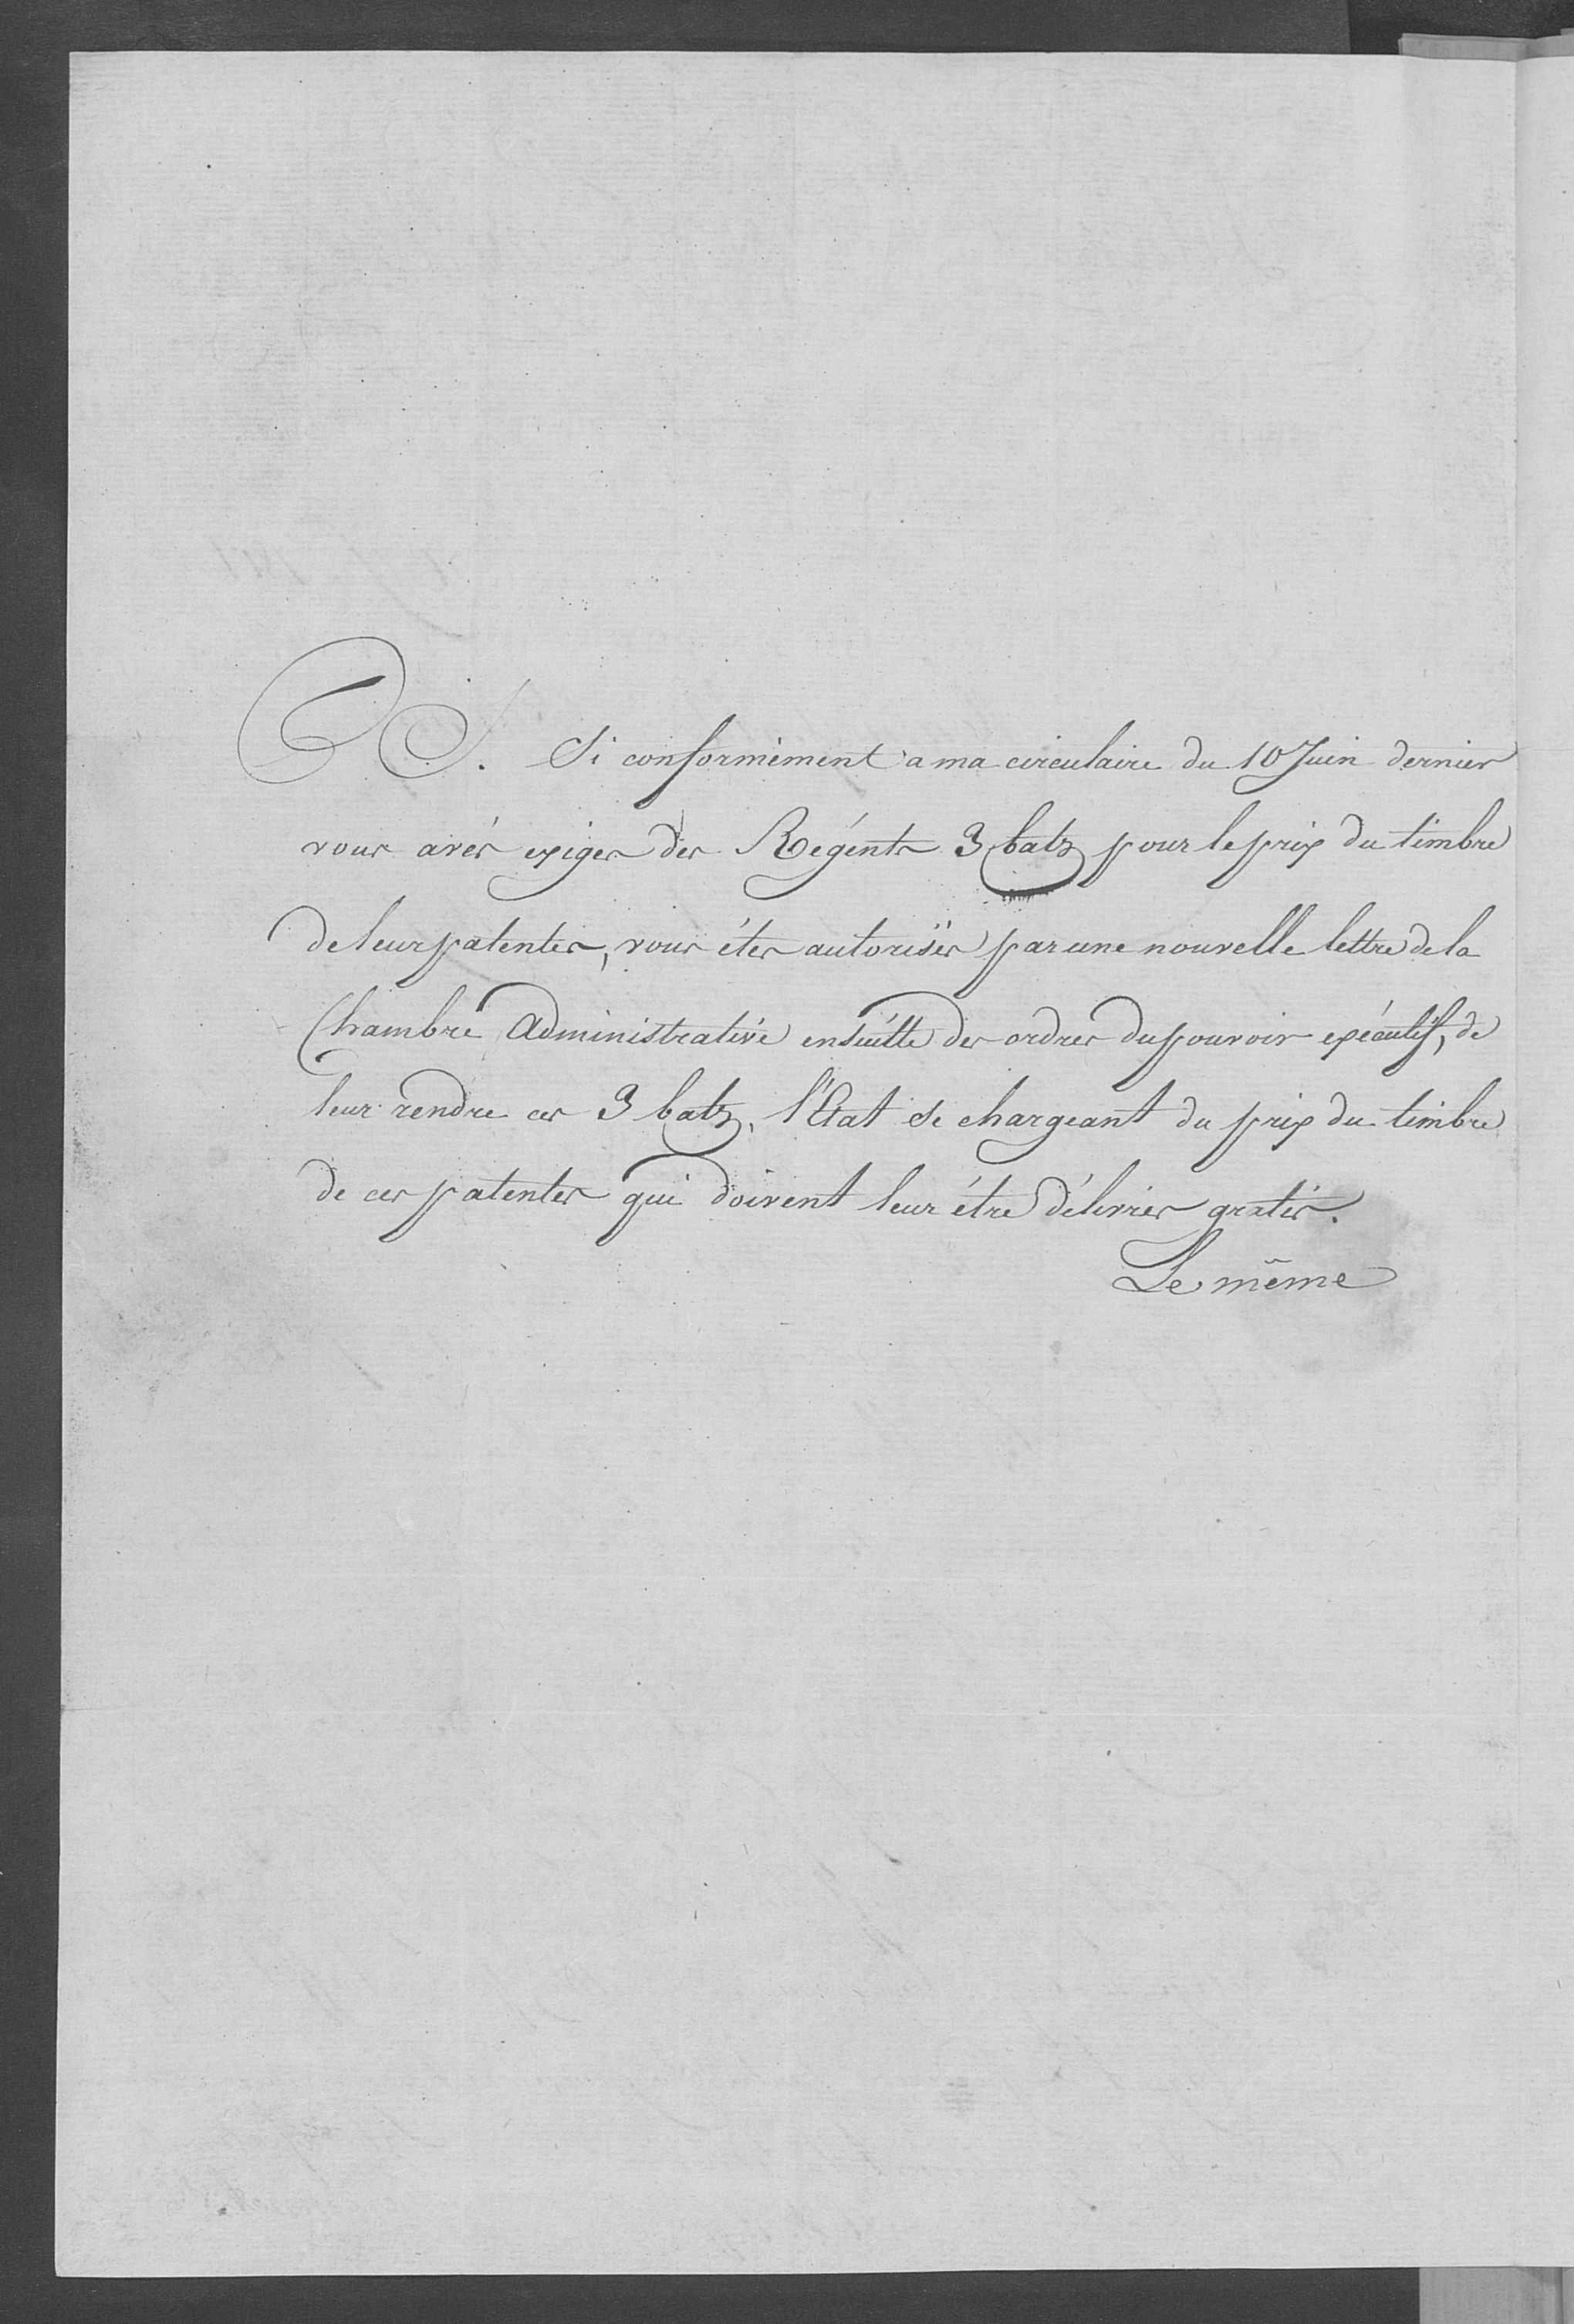 P.S. Si conformément à ma circulaire du 10 Juin dernier
vous avés exiger des Régents 3 batz pour le prix du timbre
de leur patentes, vous étes autorisés par une nouvelle lettre de la
Chambre Administrative ensuitte des ordres du pouvoir exécutif, de
leur rendre ces 3 batz, l'Etat se chargeant du prix du timbre
de ces patentes qui doivent leur étre délivrés gratis.
Le même